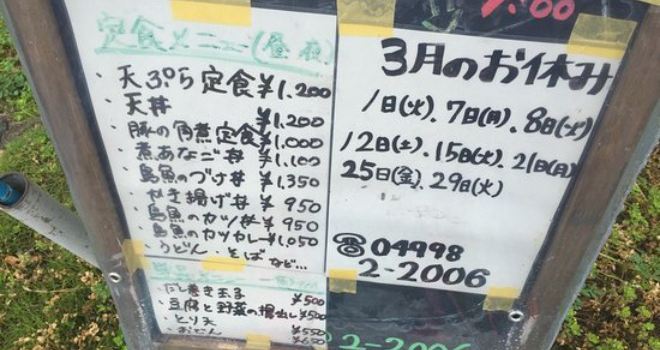 定食メニュー(昼夜)
・天ぷら定食¥1,200
・天丼 ¥1,200
・豚の角煮定食¥1,000
・煮あなご丼 ¥1,100
・島魚のづけ丼 ¥1,350
・かき揚げ丼 ¥950
・島魚のカツ丼 ¥950
・島魚のカツカレー¥1,050
・うどん、そばなど...
だし巻き玉子 ¥500
・豆腐と野菜の揚出し¥500
・とり天 ¥550
・おでん ¥650
7:00
3月のお休み
1日(火)、7日(月)、8日(火)
12日(土)、15日(火)、21日(月)
25日(金)、29日(火)
☎04998
2-2006
2-2006